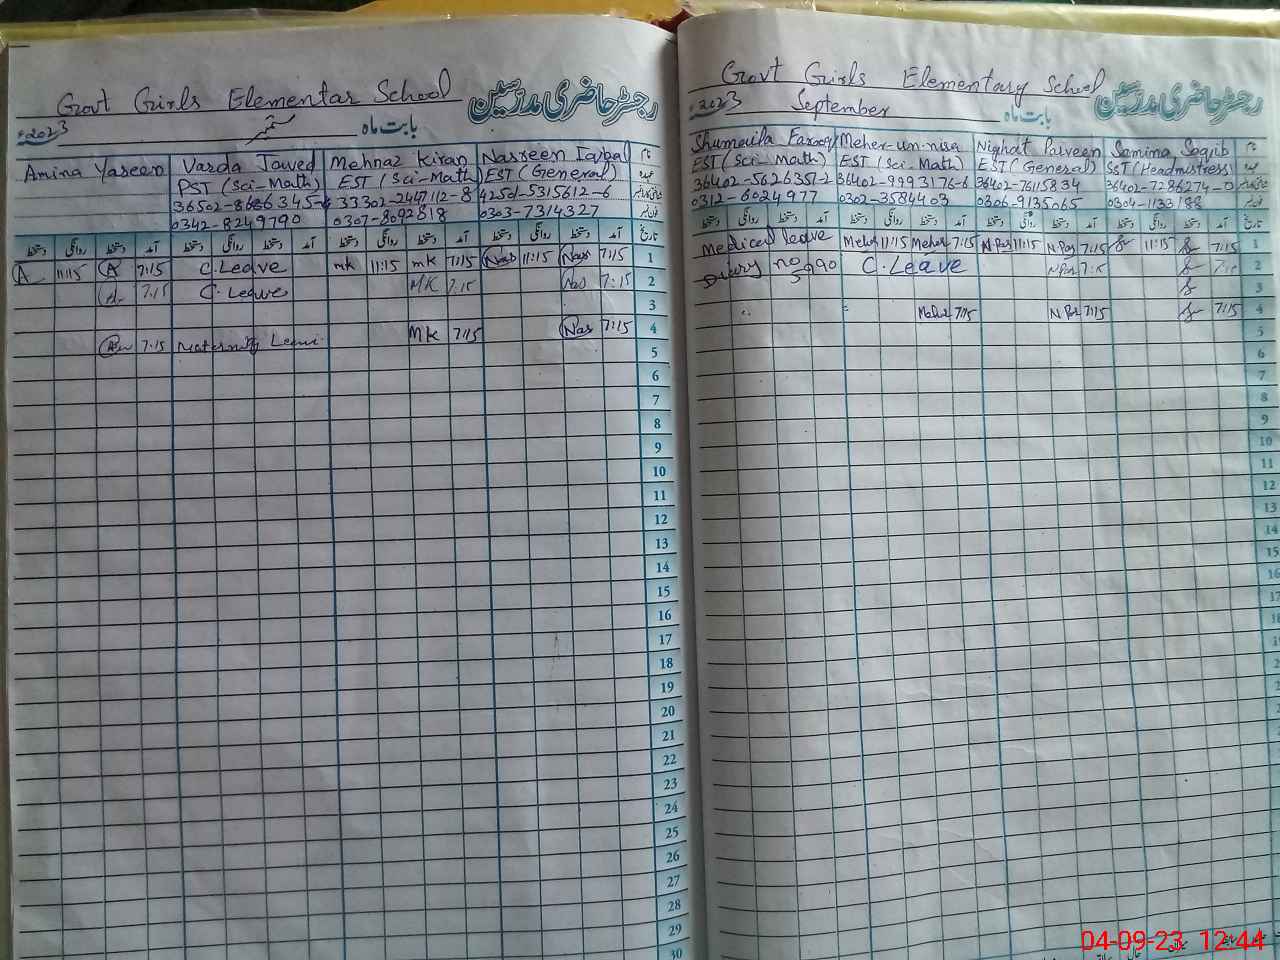 Govt Girls Elementar School
رجسٹر حاضری مدرسین
2023ء
ستمبر
بابت ماہ
Amina Yaseen Varda Jawed Mehnaz Kiran Nasreen Iqbal نام
PST (Sci-Math) EST (Sci-Math) EST (General) عہدہ
33302-2447112-8 42501-5315612-6
0342-8249790 0307-8092818 0303-7314327
دستخط روانگی دستخط آمد دستخط روانگی دستخط آمد دستخط روانگی دستخط آمد دستخط روانگی دستخط آمد تاریخ
A 11:15 A 7:15 C.Leave mk 11:15 mk 7:15 Nas 11:15 Nas 7:15 1
7:15 C.Leave MK 7:15 Nas 7:15 2
3
7:15 Maternity Leave MK 7:15 Nas 7:15 4
5
6
7
8
9
10
11
12
13
14
15
16
17
18
19
20
21
22
23
24
25
26
27
28
29
30
Govt Girls Elementary School
رجسٹر حاضری مدرسین
2023ء
September
بابت ماہ
Shumaila Farooq Meher-un-nisa Nighat Parveen Samina Saqib نام
EST (Sci-Math) EST (Sci-Math) EST (General) SST (Headmistress) عہدہ
36402-5626351-2 36402-9993176-6 36402-76115834 36402-7286274-0
0312-6024977 0302-3584403 0306-9135065 0304-1133188
دستخط روانگی دستخط آمد دستخط روانگی دستخط آمد دستخط روانگی دستخط آمد دستخط روانگی دستخط آمد تاریخ
Medical leave Meher 11:15 Meher 7:15 N Par 11:15 N Par 7:15 11:15 7:15 1
Diary no 5990 C.Leave N Par 7:15 7:15 2
3
Meher 7:15 N Par 7:15 7:15 4
5
6
7
8
9
10
11
12
13
14
15
16
17
04-09-23 12:44